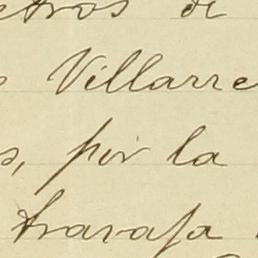 etros de
Villarre
s, por la
travasa